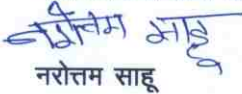 नरोत्तम साहू
नरोत्तम साहू